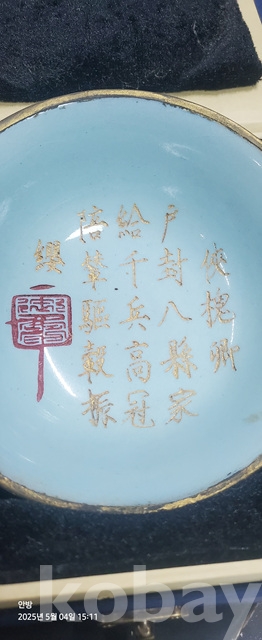 俠槐卿
戶封八縣家
給千兵高冠
陪輦驅轂振
纓
안방
2025년 5월 04일 15:11
kobay